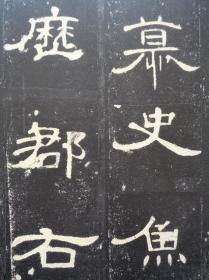 慕史魚
歷郡右